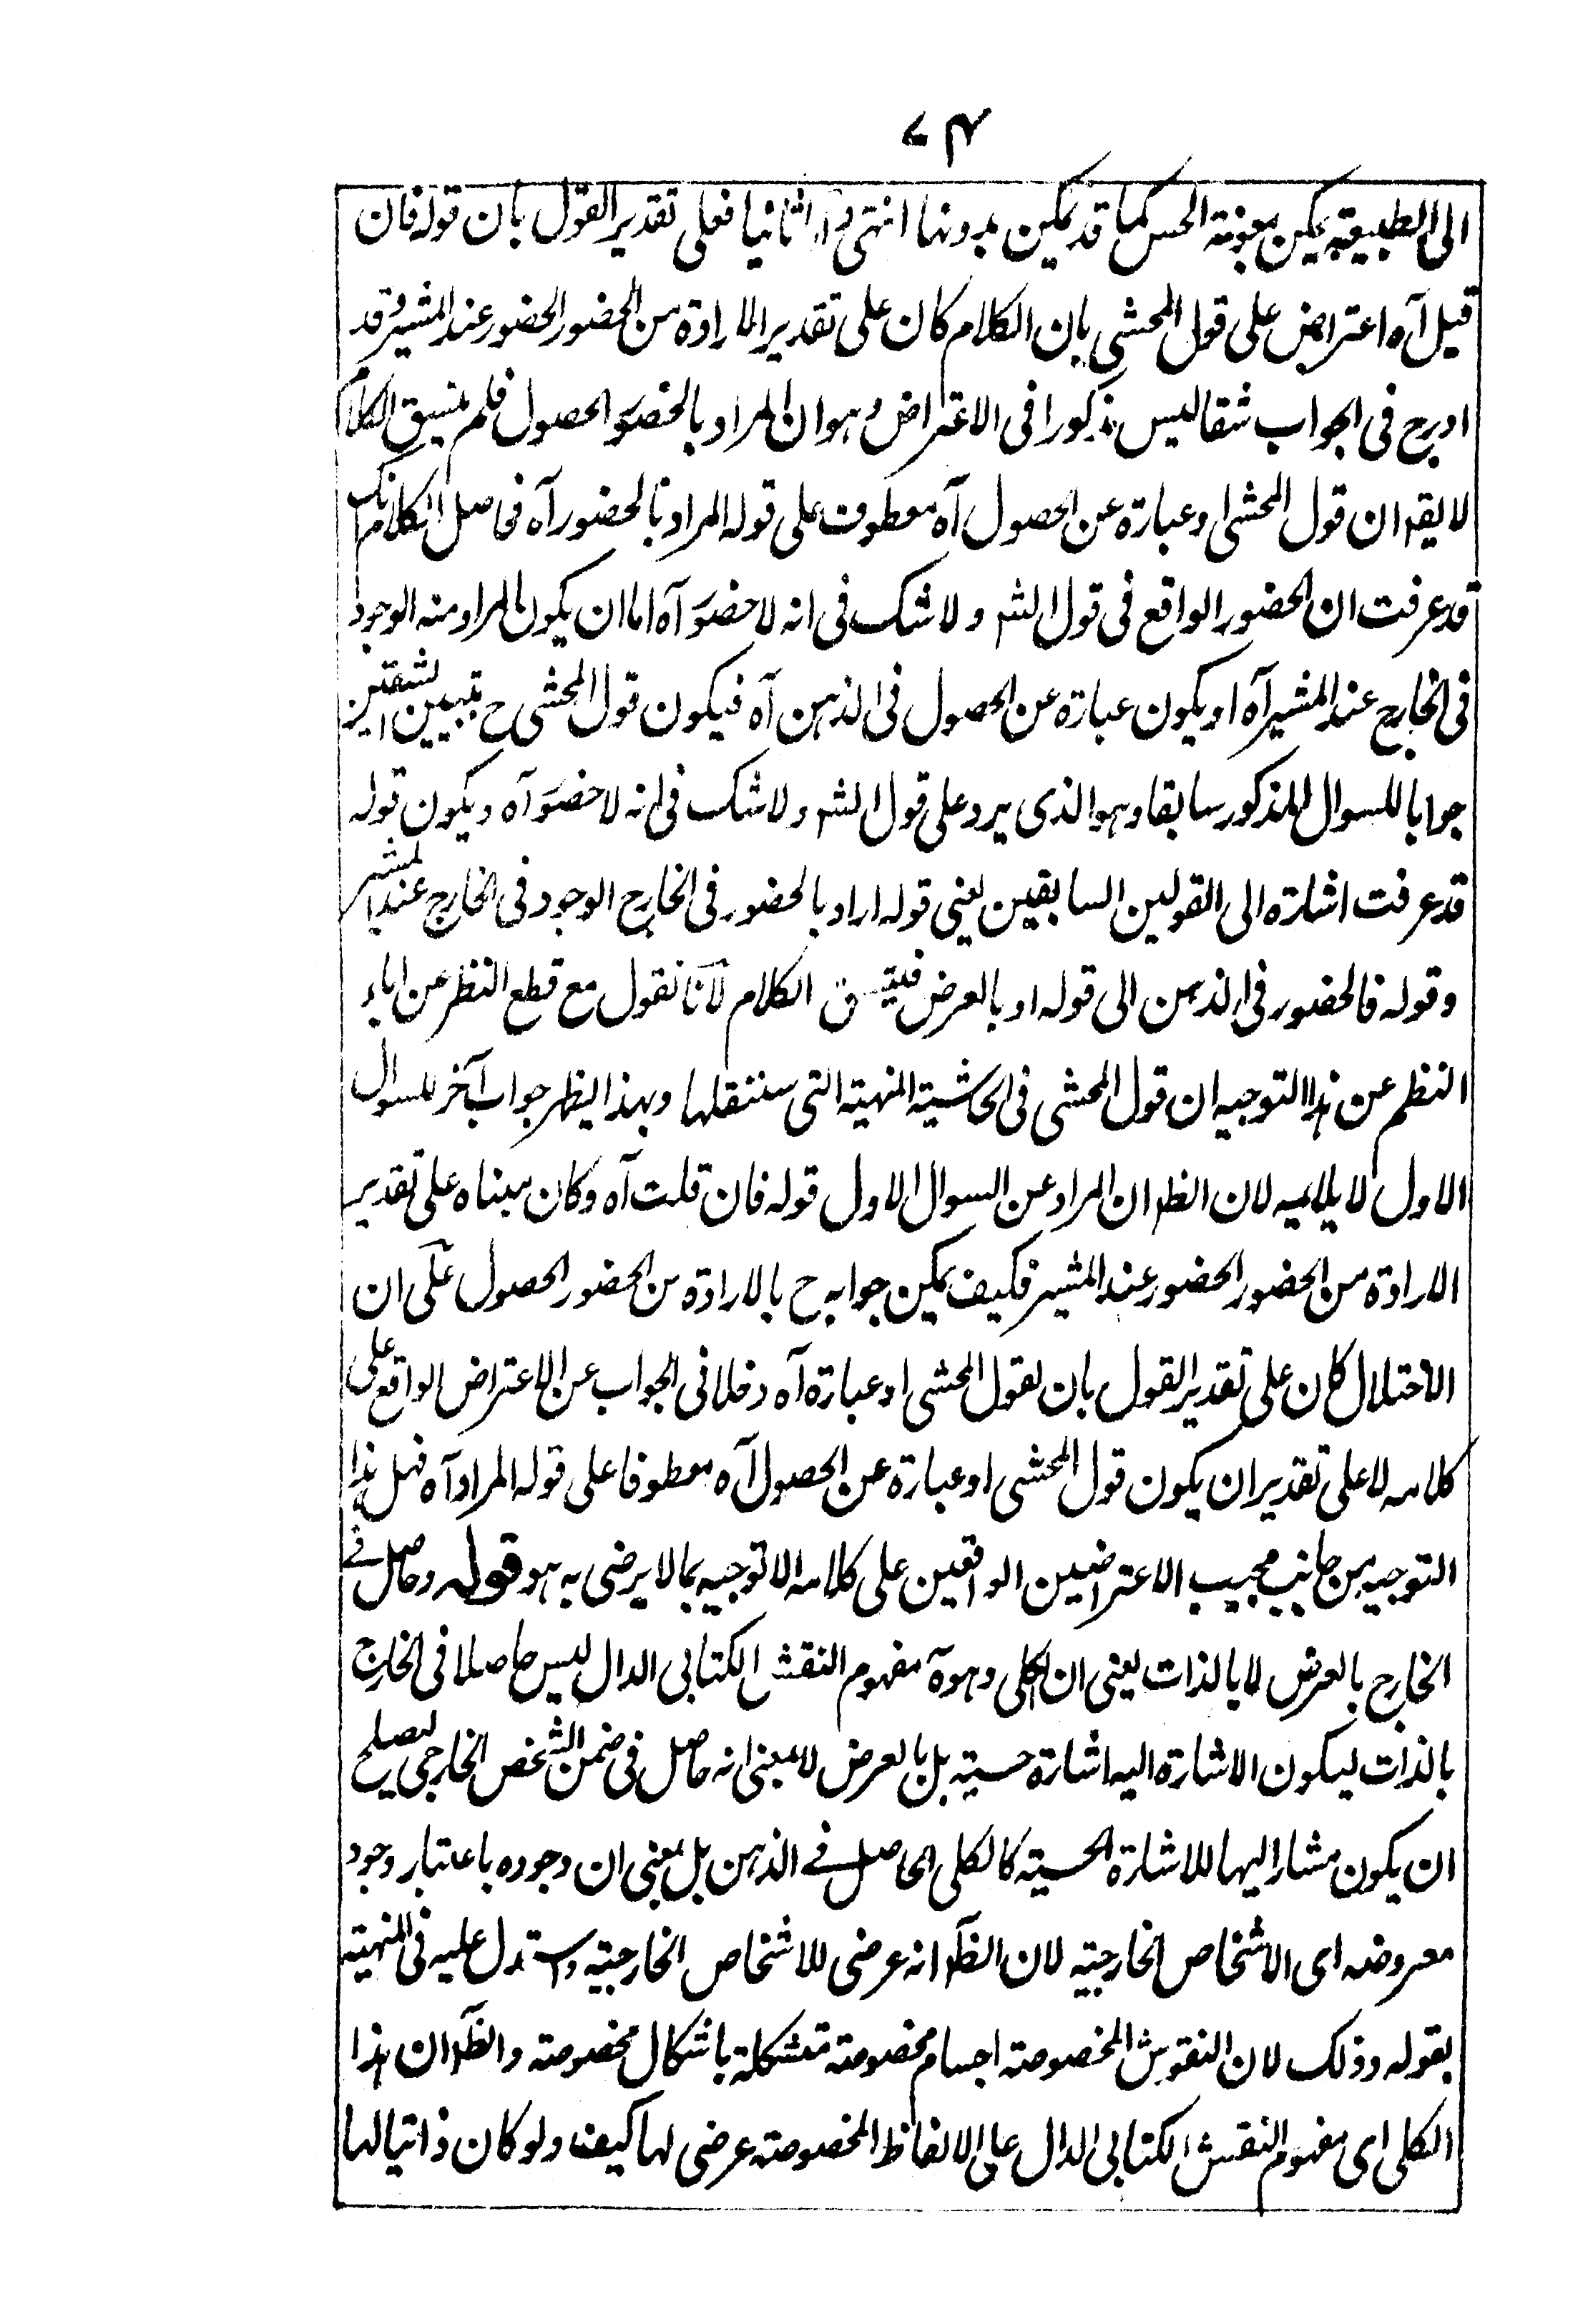 ٧٤
الى الطبيعة يمكن بمعونة الحس كما قد يمكن بدونها انتهى واما ثانيا فعلى تقدير القول بان قوله فان
قيل آه اعتراض على قول المحشى بان الكلام كان على تقدير الارادة من الحضور الحضور عند المشير وقد
ادرج فى الجواب شقا ليس مذكورا فى الاعتراض وهو ان المراد بالحضور الحصول فلم ينسق الكلام
لا يقه ان قول المحشى او عبارة عن الحصول آه معطوف على قوله المراد بالحضور آه فحاصل الكلام انك
قد عرفت ان الحضور الواقع فى قول الشه ولا شك فى انه لا حضور آه اما ان يكون المراد منه الوجود
فى الخارج عند المشير آه او يكون عبارة عن الحصول فى الذهن آه فيكون قول المحشى ح بتبيين الشقين
جوابا للسوال المذكور سابقا وهو الذى يرد على قول الشه ولا شك فى انه لا حضور آه ويكون قوله
قد عرفت اشارة الى القولين السابقين يعنى قوله اراد بالحضور فى الخارج الوجود فى الخارج عند المشير
وقوله فالحضور فى الذهن الى قوله او بالعرض فيتسق الكلام لانا نقول مع قطع النظر عن اباء
النظم عن هذا التوجيه ان قول المحشى فى الحاشية المنهية التى سننقلها وبهذا يظهر جواب آخر للسوال
الاول لا يلايمه لان الظه ان المراد عن السوال الاول قوله فان قلت آه وكان مبناه على تقدير
الارادة من الحضور الحضور عند المشير فكيف يمكن جوابه ح بالارادة من الحضور الحصول على ان
الاختلال كان على تقدير القول بان لقول المحشى او عبارة آه دخلا فى الجواب عن الاعتراض الواقع على
كلامه لا على تقدير ان يكون قول المحشى او عبارة عن الحصول آه معطوفا على قوله المراد آه فهل هذا
التوجيه من جانب مجيب الاعتراضين الواقعين على كلامه الا توجيه بما لا يرضى به هو قوله وحاصل فى
الخارج بالعرض لا بالذات يعنى ان الكلى وهو آه مفهوم النقش الكتابى الدال ليس حاصلا فى الخارج
بالذات ليكون الاشارة اليه اشارة حسية بل بالعرض لا بمعنى انه حاصل فى ضمن الشخص الخارجى ليصلح
ان يكون مشارا اليها للاشارة الحسية كالكلى الحاصل فى الذهن بل بمعنى ان وجوده باعتبار وجود
معروضه اى الاشخاص الخارجية لان الظه انه عرضى للاشخاص الخارجية واستدل عليه فى المنهية
بقوله وذلك لان النقوش المخصوصة اجسام مخصوصة متشكلة باشكال مخصوصة والظه ان هذا
الكلى اى مفهوم النقش الكتابى الدال على الالفاظ المخصوصة عرضى لها كيف ولو كان ذاتيا لها